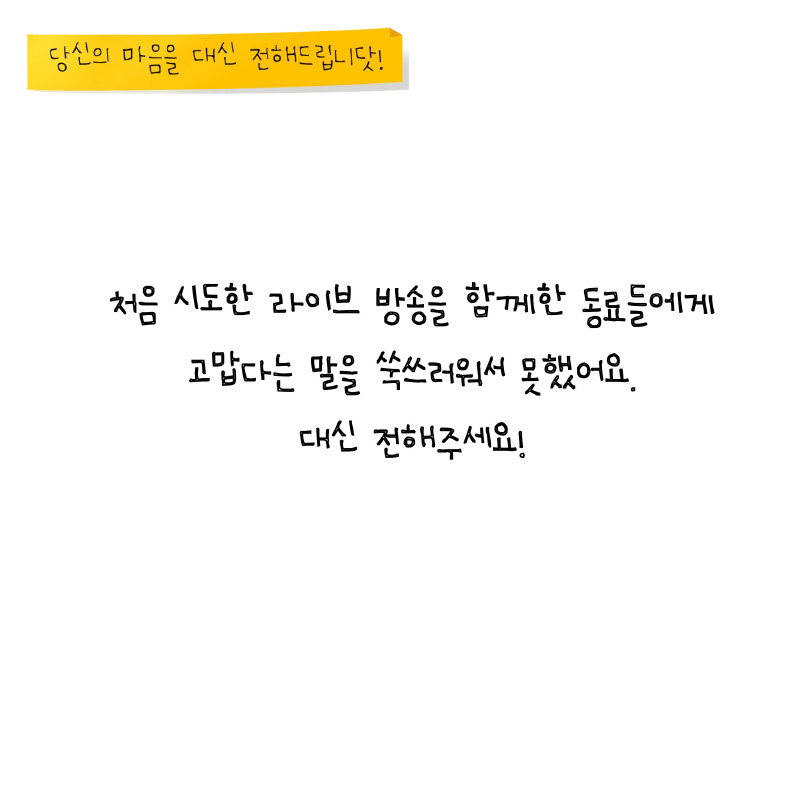 당신의 마음을 대신 전해드립니닷!
처음 시도한 라이브 방송을 함께한 동료들에게
고맙다는 말을 쑥쓰러워서 못했어요.
대신 전해주세요!